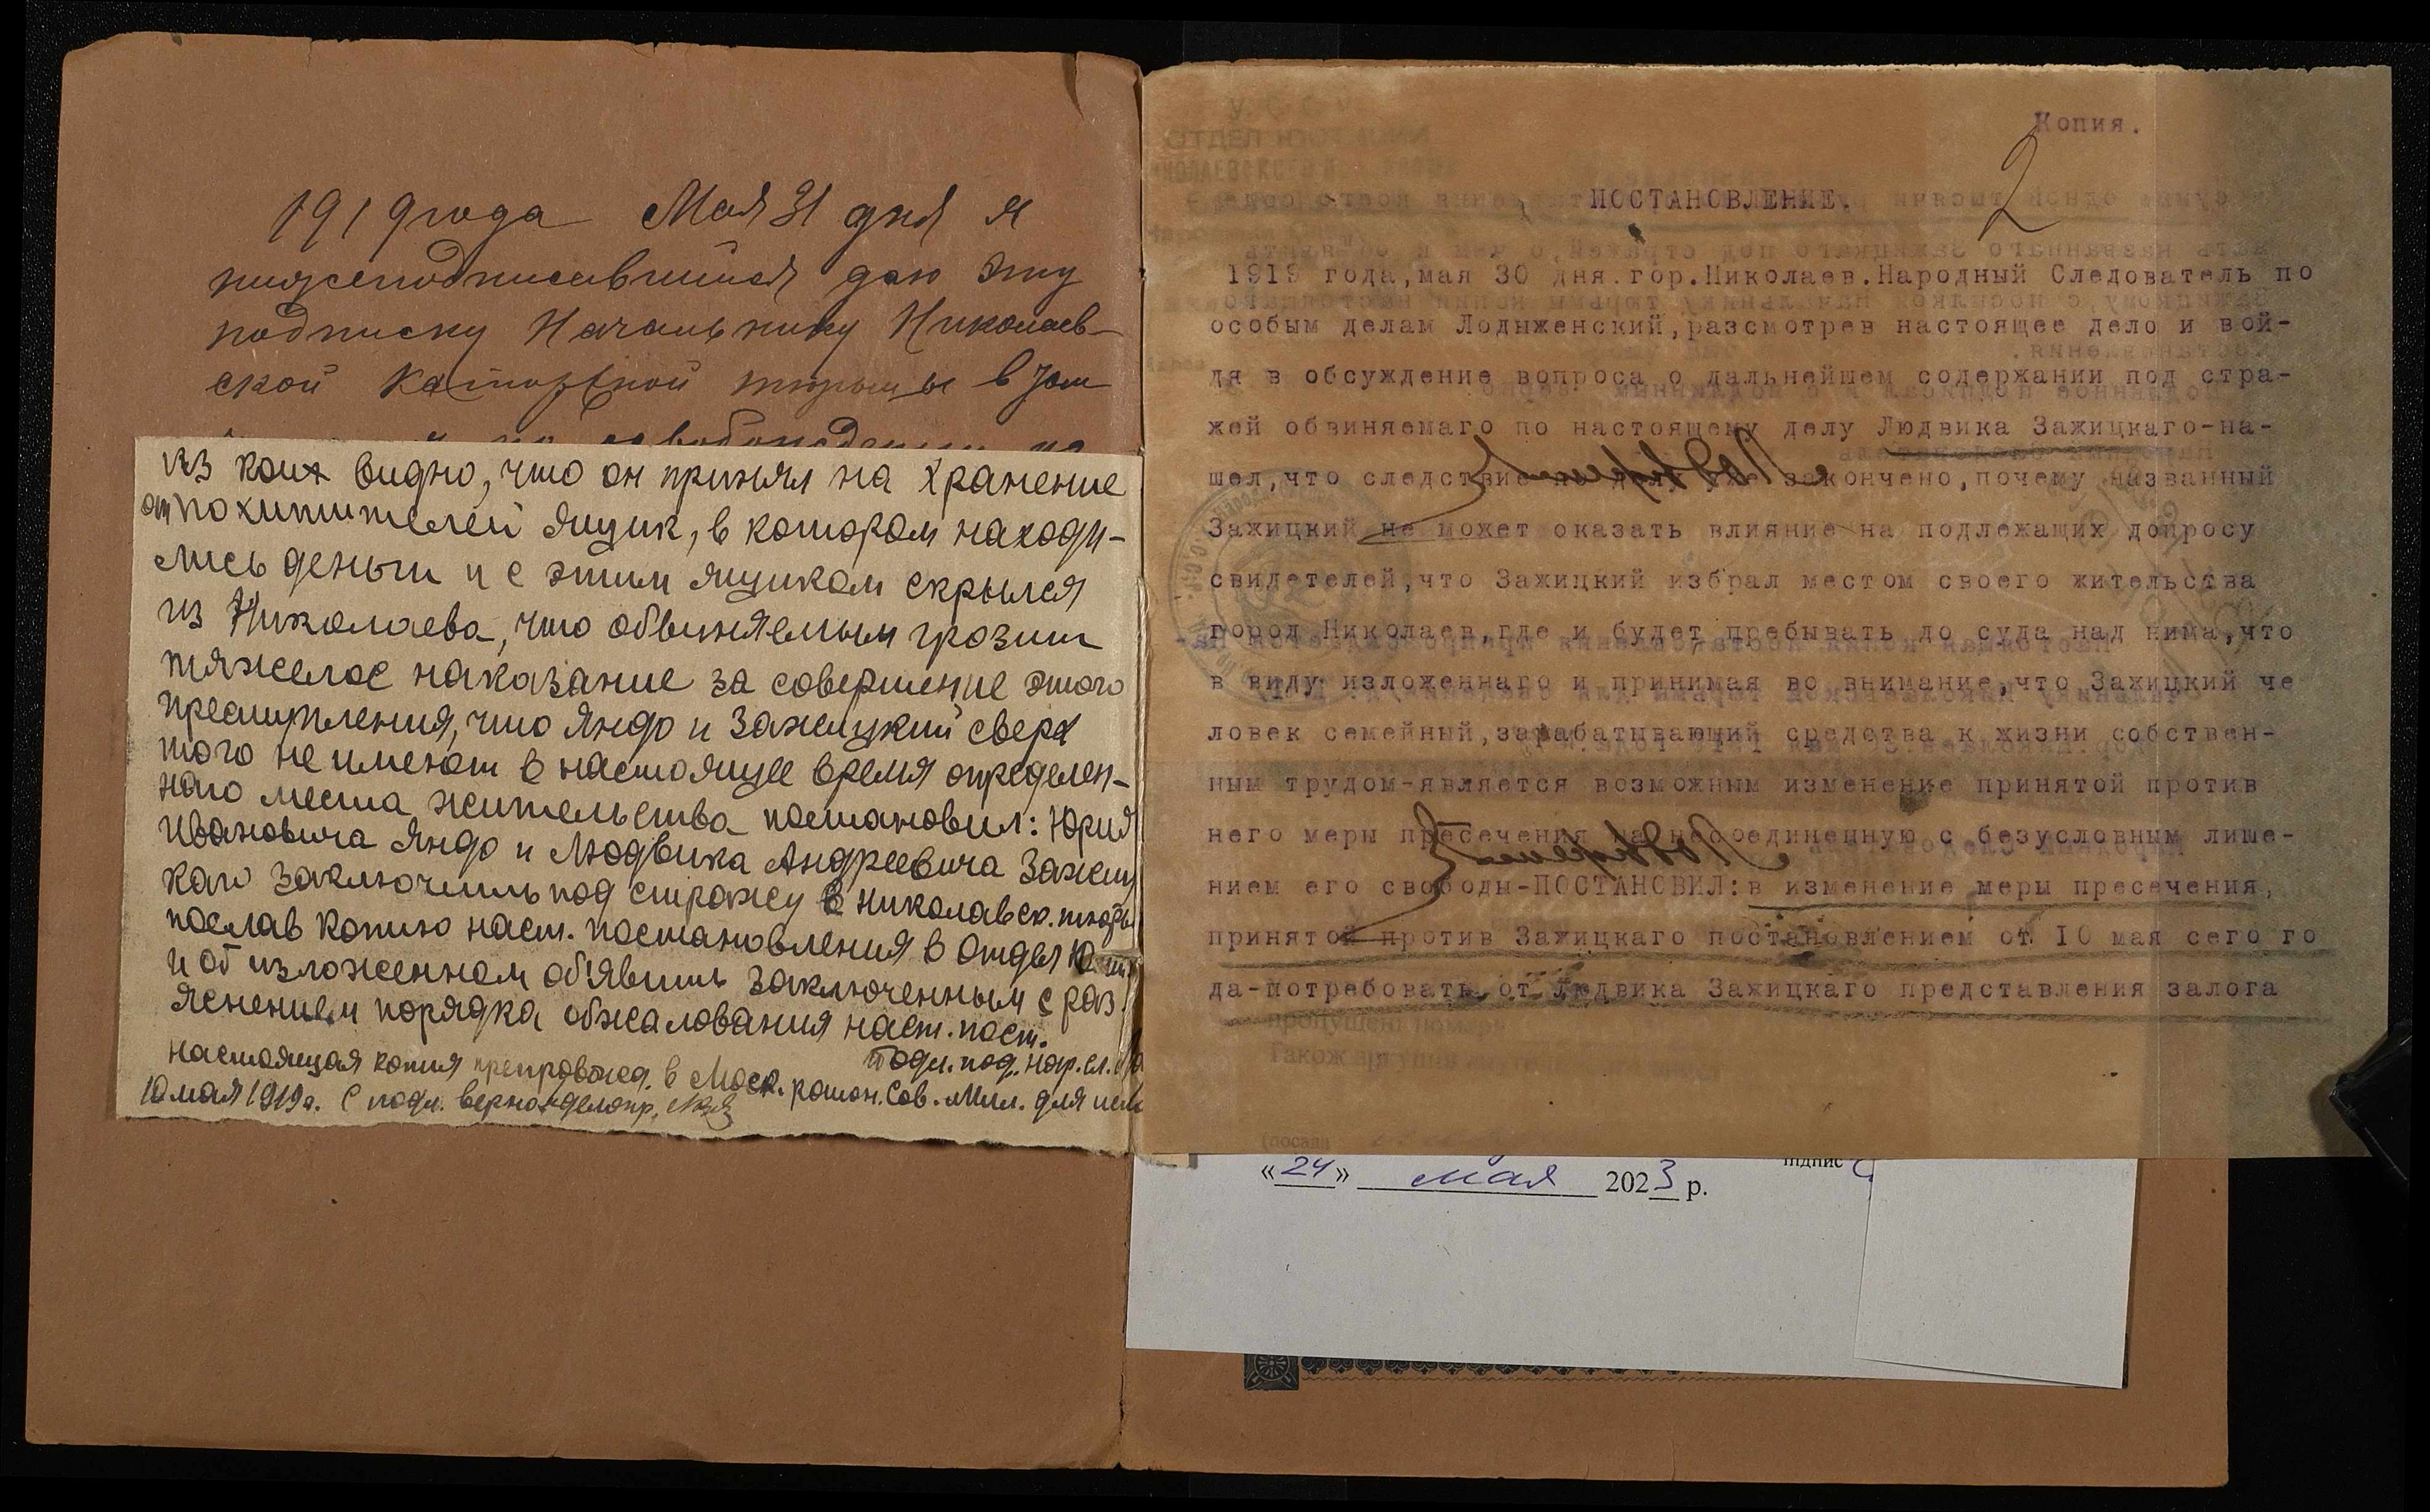 1919 года Мая 31 дня я
нижеподписавшийся даю эту
подписку Начальнику Николаев-
ской каторжной тюрьмы в том
из коих видно, что он принял на хранение
от похитителей ящик, в котором находи-
лись деньги и с этим ящиком скрылся
из Николаева, что обвиняемым грозит
тяжелое наказание за совершение этого
преступления, что Яндо и Зажицкий сверх
того не имеют в настоящее время определен-
ного места жительства постановил: Юрия
Ивановича Яндо и Людвика Андреевича Зажиц
каго заключить под стражу в Николаевск. тюрь
послав копию наст. постановления в Отдел Юст
и об изложенном об'явить заключенным с раз
яснением порядка обжалования наст. пост.
Подл. под. нар. сл.
настоящая копия препровожд. в Моск. район. Сов. Мил. для
10 мая 1919 г. С подл. верно: делопр.
Копия.
2
ПОСТАНОВЛЕНИЕ.
1919 года,мая 30 дня.гор.Николаев.Народный Следователь по
особым делам Лодыженский,разсмотрев настоящее дело и вой-
дя в обсуждение вопроса о дальнейшем содержании под стра-
жей обвиняемаго по настоящему делу Людвика Зажицкаго-на-
шел,что следствие по делу уже закончено,почему названный
Зажицкий не может оказать влияние на подлежащих допросу
свидетелей,что Зажицкий избрал местом своего жительства
город Николаев,где и будет пребывать до суда над нима,что
в виду изложеннаго и принимая во внимание,что Зажицкий че
ловек семейный,зарабатывающий средства к жизни собствен-
ным трудом-является возможным изменение принятой против
него меры пресечения на несоединенную с безусловным лише-
нием его свободы-ПОСТАНОВИЛ:в изменение меры пресечения,
принятой против Зажицкаго постановлением от 10 мая сего го
да-потребовать от Людвика Зажицкаго представления залога
(посада
підпис
«24» мая 2023 р.